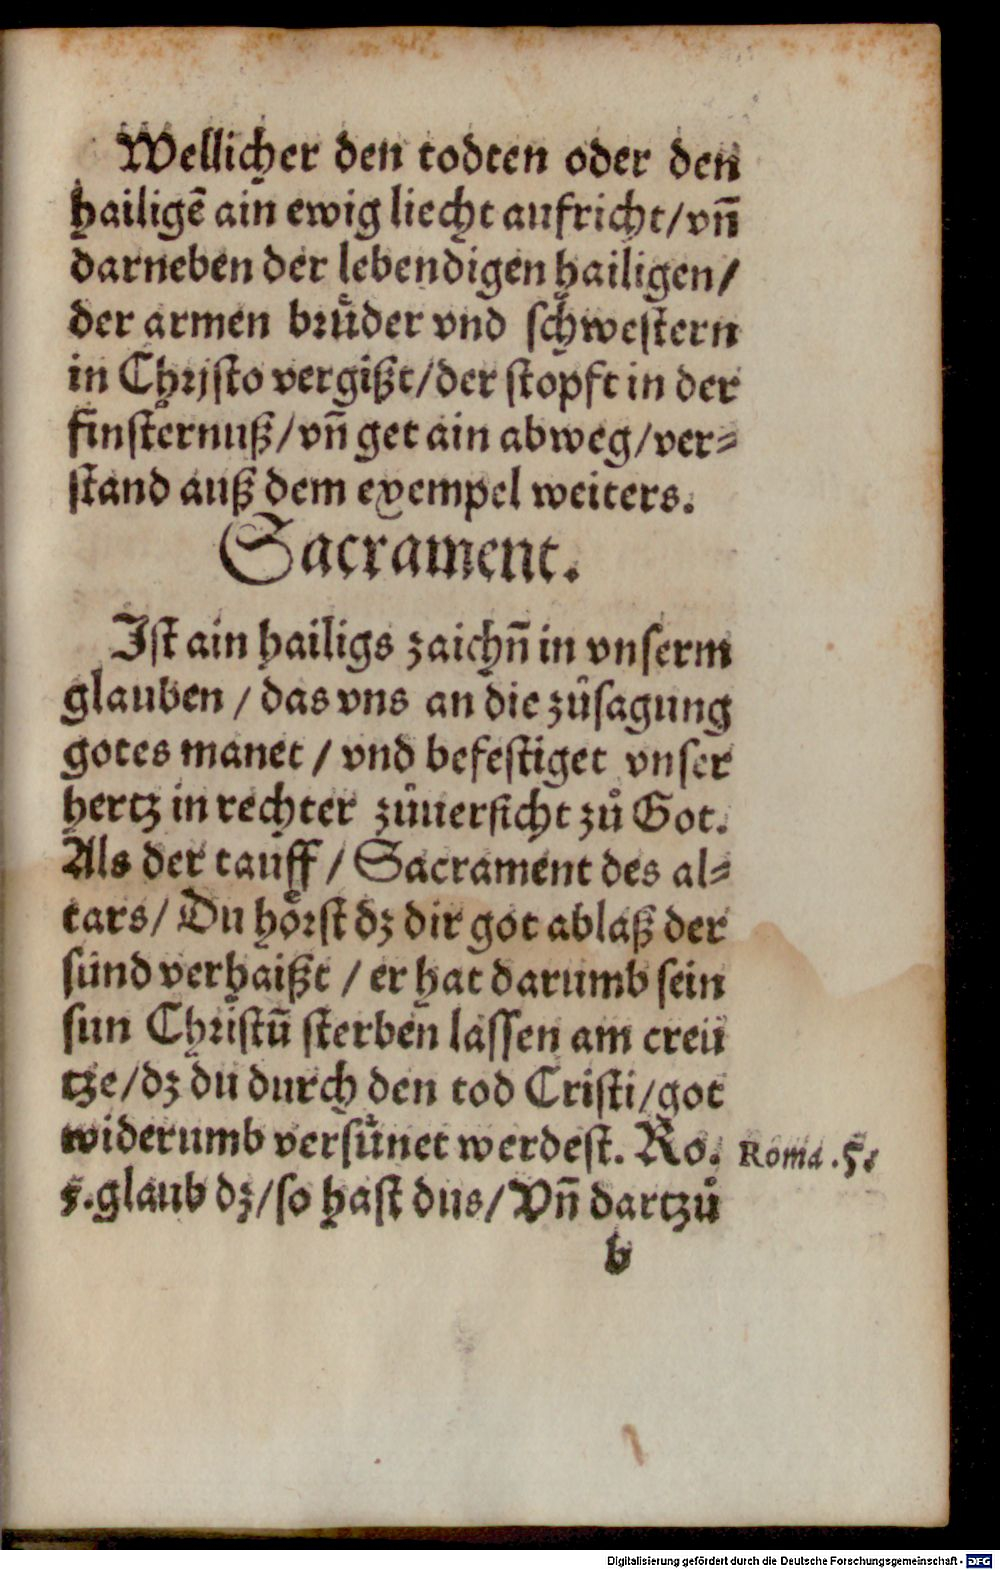 Wellicher den todten oder den
hailigē ain ewig liecht aufricht/vn̄
darneben der lebendigen hailigen/
der armen bruͤder vnd schwestern
in Christo vergißt/der stopft in der
finsternuß/vn̄ get ain abweg/ver⸗
stand auß dem exempel weiters.
Sacrament.
Ist ain hailigs zaichn̄ in vnserm
glauben / das vns an die zuͦsagung
gotes manet / vnd befestiget vnser
hertz in rechter zuͦuersicht zuͦ Got.
Als der tauff / Sacrament des al⸗
tars/ Du hoͤrst dz dir got ablaß der
sünd verhaißt / er hat darumb sein
sun Christū sterben lassen am creü
tze/dz du durch den tod Cristi/got
widerumb versuͤnet werdest. Ro.
5.glaub dz/so hast dus/Vn̄ dartzuͦ
Roma .5.
b
Digitalisierung gefördert durch die Deutsche Forschungsgemeinschaft - DFG